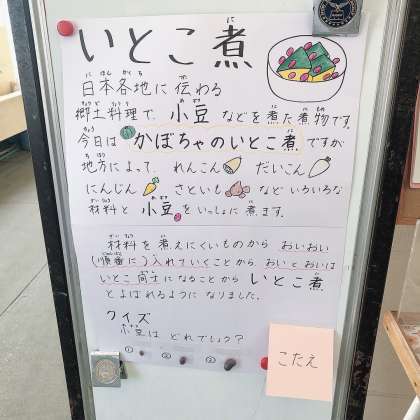 いとこ煮
日本各地に伝わる
郷土料理で、小豆などを煮た煮物です。
今日はかぼちゃのいとこ煮ですが
地方によって、れんこん だいこん
にんじん さといも など いろいろな
材料と 小豆をいっしょに煮ます。
材料を煮えにくいものから おいおい
(順番に)入れていくことから、おいとおいは
いとこ同士になることから いとこ煮
とよばれるように なりました。
クイズ
小豆は どれでしょう?
① ② ③
こたえ